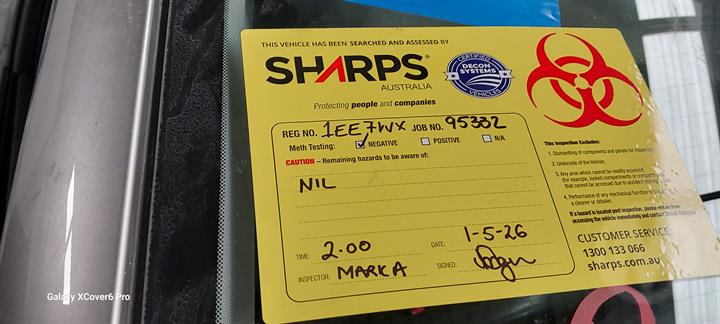 THIS VEHICLE HAS BEEN SEARCHED AND ASSESSED BY
SHARPS®
AUSTRALIA
CERTIFIED
DECON
SYSTEMS
VEHICLES
Protecting people and companies
REG NO. 1EE7WX JOB NO. 95382
Meth Testing: NEGATIVE POSITIVE N/A
CAUTION – Remaining hazards to be aware of:
NIL
TIME: 2.00 DATE: 1-5-26
INSPECTOR: MARK A SIGNED:
This Inspection Excludes:
1. Dismantling of components and panels for inspection
2. Underside of the Vehicle;
3. Any area which cannot be readily accessed
(for example, locked compartments or compartments
that cannot be accessed due to accident
4. Performance of any mechanical function
a cleaner or detailer.
If a hazard is located post inspection, please
accessing the vehicle immediately and contact
CUSTOMER SERVICE:
1300 133 066
sharps.com.au
Galaxy XCover6 Pro